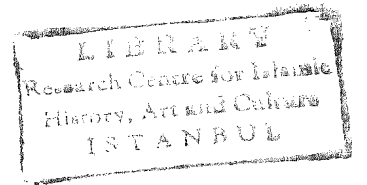 LIBRARY
Research Centre for Islamic
History, Art and Culture
ISTANBUL